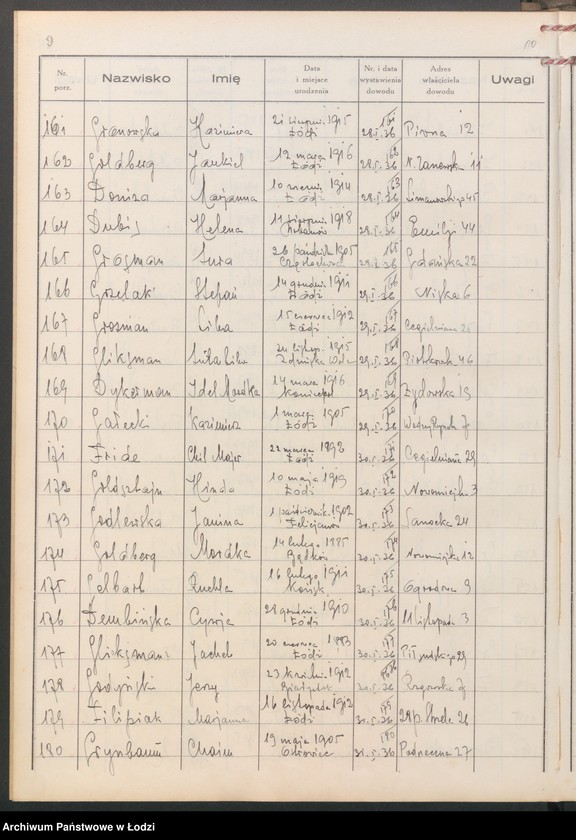 9
10
Nr. porz.
Nazwisko
Imię
Data i miejsce urodzenia
Nr. i data wystawienia dowodu
Adres właściciela dowodu
Uwagi
161 Granowska Kazimiera 21 1915 Łódź 161 28.I.36 Piwna 12
162 Goldberg Jankiel 12 marca 1916 Łódź 162 28.I.36 11
163 Doniza Marjanna 10 1914 Łódź 163 28.I.36 Limanowskiego 45
164 Dubis Helena 11 sierpni. 1918 164 28.I.36 44
165 Grosman Sura 26 paźdźiern. 1905 Częstochowa 165 28.I.36 Gdańska 22
166 Grzelak Stefan 14 grudni. 1911 Łódź 166 29.I.36 Niska 6
167 Grosman Liba 15 czerwca 1912 Łódź 167 29.I.36 Cegielniana 25
168 Gliksman 24 listop. 1915 Zduńska Wola 168 29.I.36 Piotrkowsk 46
169 Dykerman Idel Mordka 14 marca 1916 169 29.I.36 Żydowska 19
170 Gałecki Kazimierz 1 marca 1905 Łódź 170 29.I.36 Wodny Rynek 7
171 Fride Chil Majer 22 marca 1893 Łódź 171 30.I.36 Cegielniana 29
172 Goldsztajn Hinda 10 maja 1919 Łódź 172 30.I.36 Nowomiejsk 3
173 Godlewska Janina 1 październik. 1902 Felicjanów 173 30.I.36 Sanocka 24
174 Goldberg Mordka 14 lutego 1885 174 30.I.36 Nowomiejska 12
175 Gelbart Ruchla 16 lutego 1911 Końsk. 175 30.I.36 Ogrodowa 9
176 Dembińska Cywja 28 grudnia 1910 Łódź 176 30.I.36 11 Listopada 3
177 Gliksman Jachet 20 czerwca 1883 Łódź 177 30.I.36 Piłsudskiego 29
178 Jerzy 23 1912 Białystok 178 30.I.36 Rzgowska 7
179 Filipiak Marjanna 16 listopada 1912 Łódź 179 31.I.36 28 p. Strzelc. 26
180 Grynbaum Chaim 19 maja 1905 180 31.I.36 Podrzeczna 27
Archiwum Państwowe w Łodzi